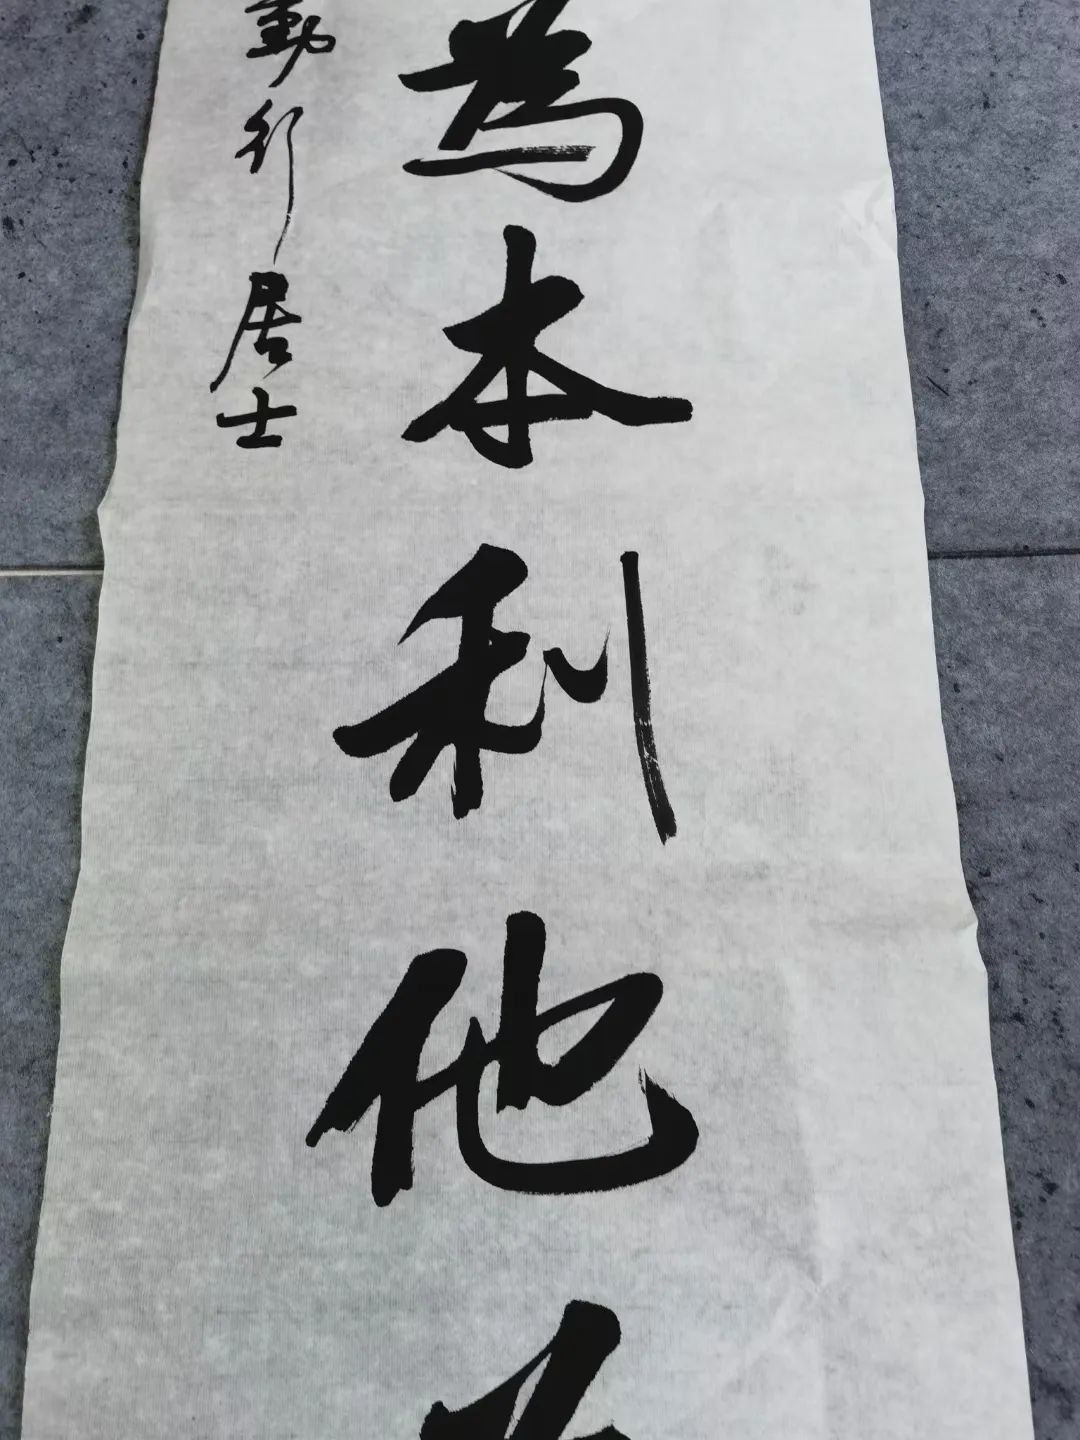 為本利他
勤行居士